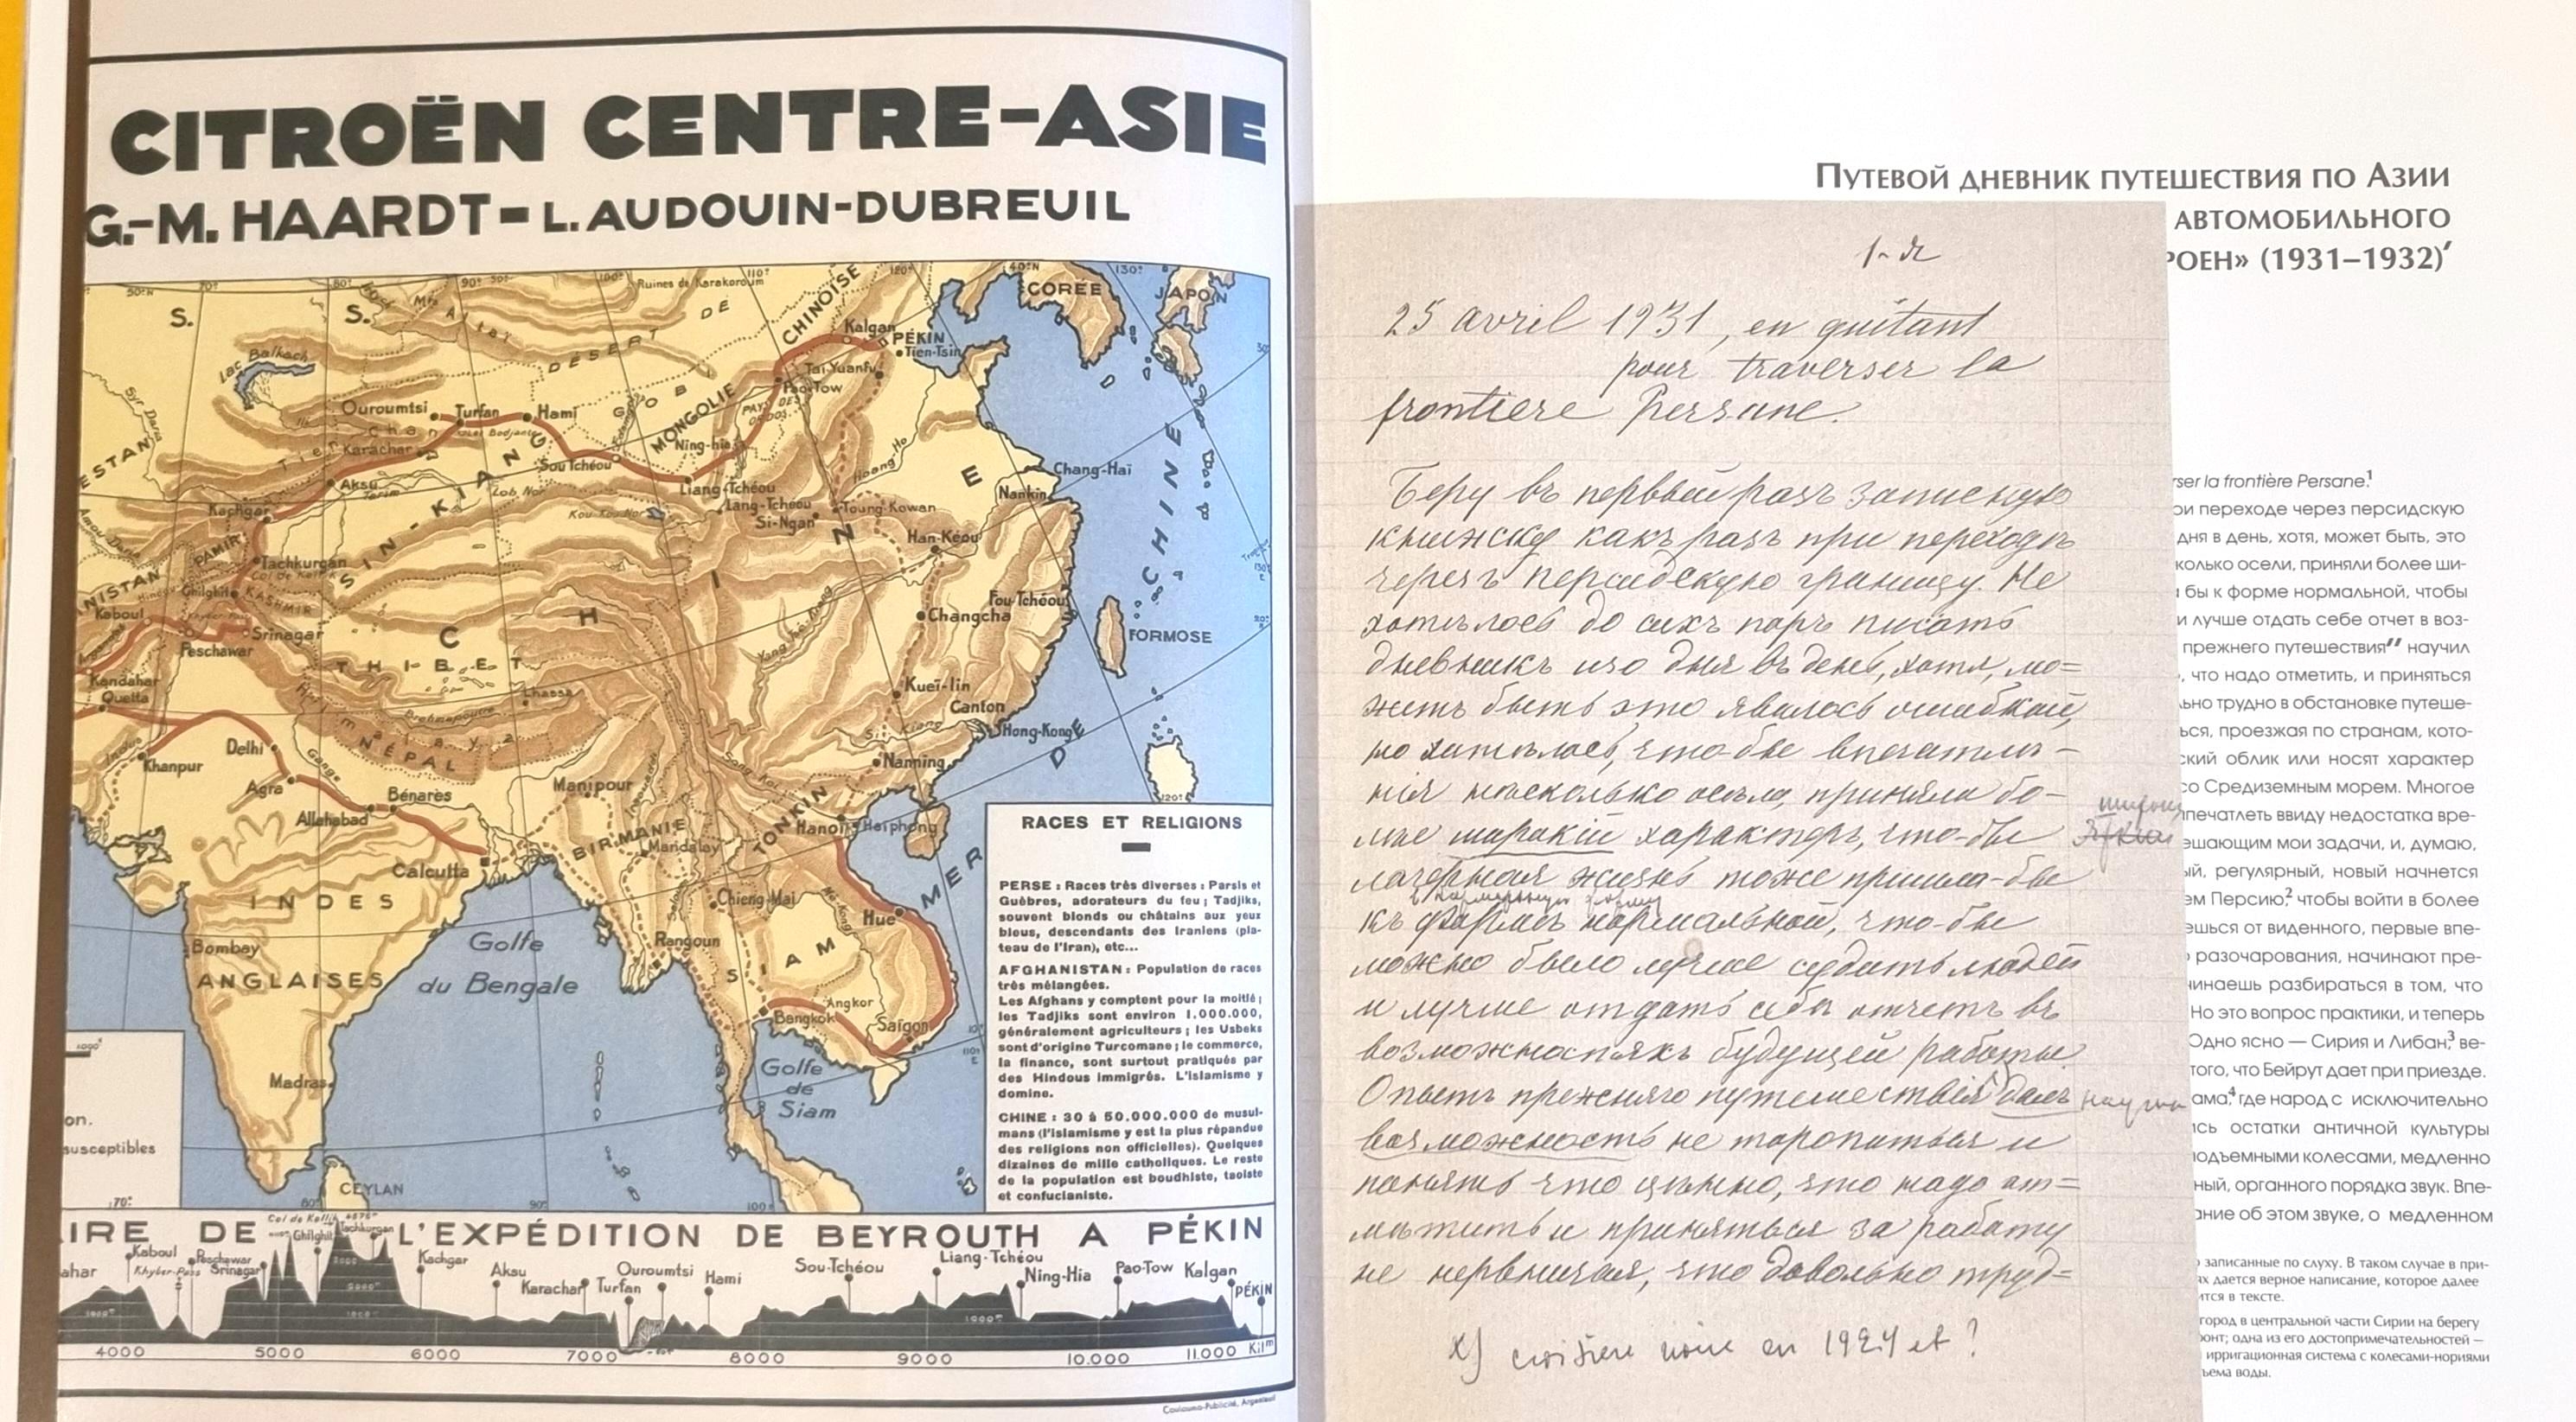 CITROËN CENTRE-ASIE
G.-M. HAARDT - L. AUDOUIN-DUBREUIL
50°N 70° 80° 90° 50° 100° 110° 120° 40°N 130°
Ruines de Karakoroum
CORÉE
JAPON
S. S.
Mts Altaï
DÉSERT DE
GOBI
CHINOISE
MONGOLIE
Kalgan
PÉKIN
Tien-Tsin
Lac Balkach
Tai-Yuanfu
Pao-Tow
PAYS DES ORDOS
Syr Daria
Ouroumtsi
Turfan
Hami
Ning-hia
ESTAN
Karachar
Sou Tchéou
Hoang Ho
Chang-Haï
Aksu
Tarim
Lob Nor
Liang-Tchéou
Nankin
Kachgar
SIN-KIANG
Kou-Kou-Nor
Lang-Tchéou
Si-Ngan
Toung-Kowan
Amou-Daria
PAMIR
Han-Kéou
Tachkurgan
ANISTAN
Ghilghit
KASHMIR
Fou-Tchéou
Kaboul
Srinagar
CHINE
Changcha
FORMOSE
Peschawar
THIBET
Kandahar
Quetta
Lhassa
Kueï-lin
Brahmapoutre
Canton
Himalaya
NÉPAL
Si Kiang
Hong-Kong
Delhi
Khanpur
Gange
Nanning
Agra
Manipour
Bénarès
TONKIN
Allahabad
Hanoï
Haïphong
BIRMANIE
Mandalay
Calcutta
MER DE CHINE
Chieng-Mai
INDES
Hué
Golfe
du Bengale
Bombay
Rangoun
SIAM
ANGLAISES
Angkor
Bangkok
Saïgon
Golfe
de
Siam
Madras
CEYLAN
70° 80° 90° 100°
on.
susceptibles
RACES ET RELIGIONS
PERSE : Races très diverses : Parsis et
Guèbres, adorateurs du feu ; Tadjiks,
souvent blonds ou châtains aux yeux
bleus, descendants des Iraniens (pla-
teau de l'Iran), etc...
AFGHANISTAN : Population de races
très mélangées.
Les Afghans y comptent pour la moitié ;
les Tadjiks sont environ 1.000.000,
généralement agriculteurs ; les Usbeks
sont d'origine Turcomane ; le commerce,
la finance, sont surtout pratiqués par
des Hindous immigrés. L'islamisme y
domine.
CHINE : 30 à 50.000.000 de musul-
mans (l'islamisme y est la plus répandue
des religions non officielles). Quelques
dizaines de mille catholiques. Le reste
de la population est boudhiste, taoïste
et confucianiste.
IRE DE L'EXPÉDITION DE BEYROUTH A PÉKIN
ahar
Kaboul
Khyber-Pass
Peschawar
Srinagar
Ghilghit
Tachkurgan
Kachgar
Aksu
Karachar
Turfan
Ouroumtsi
Hami
Sou-Tchéou
Liang-Tchéou
Ning-Hia
Pao-Tow
Kalgan
PÉKIN
4000 5000 6000 7000 8000 9000 10.000 11.000 Kilm
Coulouma-Publicité, Argenteuil
ПУТЕВОЙ ДНЕВНИК ПУТЕШЕСТВИЯ ПО АЗИИ
АВТОМОБИЛЬНОГО
РОЕН» (1931–1932)′
1-я
25 avril 1931, en quitant
pour traverser la
frontiere Persane.
Беру въ первый разъ записную
книжку какъ разъ при переходѣ
черезъ персидскую границу. Не
хотѣлось до сихъ поръ писать
дневникъ изо дня въ день, хотя, мо=
жетъ быть это явилось ошибкой,
но хотѣлось, что-бы впечатлѣ-
нія насколько осѣли, приняли бо-
лѣе широкій характеръ, что-бы
лагерная жизнь тоже пришла-бы
въ нормальную форму
къ формѣ нормальной, что-бы
можно было лучше судить людей
и лучше отдать себѣ отчетъ въ
возможностяхъ будущей работы.
Опытъ прежняго путешествія далъ научил
возможность не торопиться и
понять что цѣнно, что надо от=
мѣтить и приняться за работу
не нервничая, что довольно труд=
x) croisière noire en 1924 et ?
rser la frontière Persane.¹
ри переходе через персидскую
дня в день, хотя, может быть, это
колько осели, приняли более ши-
бы к форме нормальной, чтобы
и лучше отдать себе отчет в воз-
прежнего путешествия′′ научил
, что надо отметить, и приняться
ьно трудно в обстановке путеше-
ься, проезжая по странам, кото-
ский облик или носят характер
со Средиземным морем. Многое
печатлеть ввиду недостатка вре-
ешающим мои задачи, и, думаю,
ый, регулярный, новый начнется
ем Персию,² чтобы войти в более
ешься от виденного, первые впе-
разочарования, начинают пре-
чинаешь разбираться в том, что
Но это вопрос практики, и теперь
Одно ясно — Сирия и Либан,³ ве-
того, что Бейрут дает при приезде.
ама,⁴ где народ с исключительно
сь остатки античной культуры
подъемными колесами, медленно
ный, органного порядка звук. Впе-
ание об этом звуке, о медленном
записанные по слуху. В таком случае в при-
ях дается верное написание, которое далее
ится в тексте.
город в центральной части Сирии на берегу
онт; одна из его достопримечательностей —
ирригационная система с колесами-нориями
ъема воды.